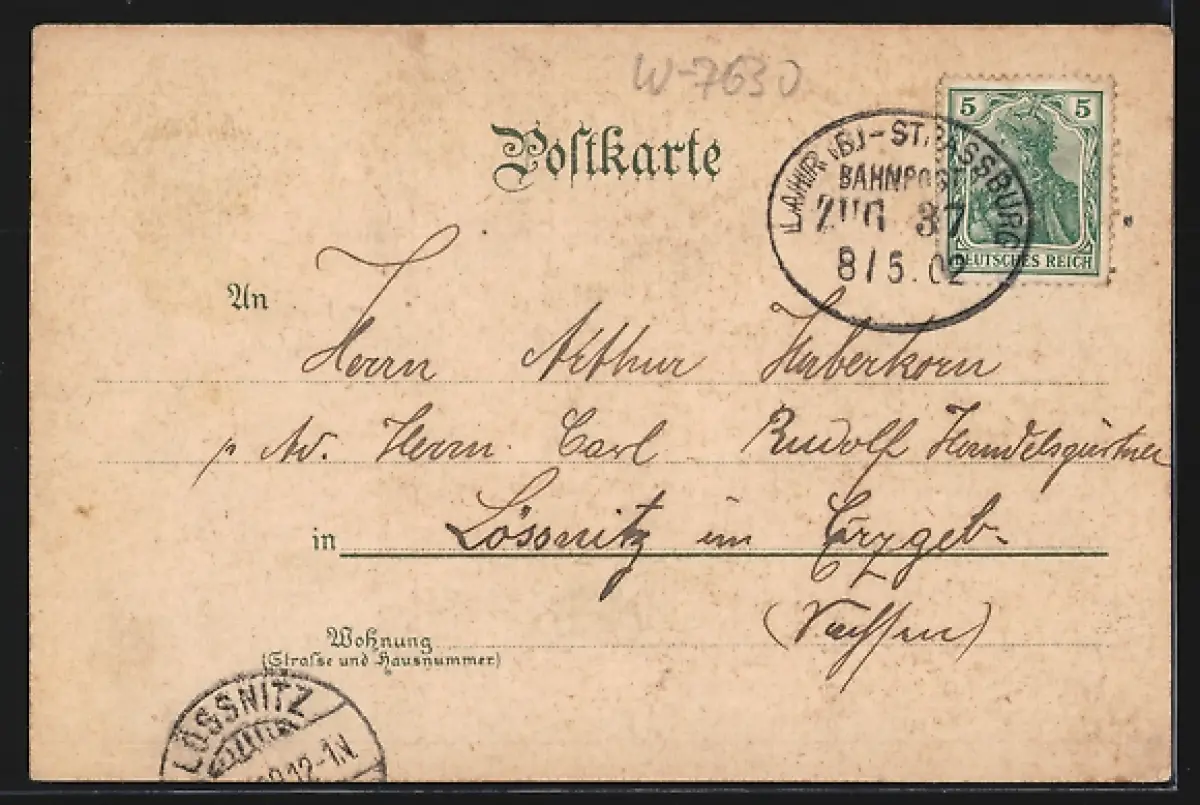 W-7630
Postkarte
5 5
DEUTSCHES REICH
LAHR (B) - STRASSBURG
BAHNPOST
ZUG 37
8/5.02
An
Herrn Arthur Haberkorn
p. Ad. Herrn Carl Rudolf Handelsgärtner
in Lössnitz im Erzgeb.
(Sachsen)
Wohnung
(Straße und Hausnummer)
LÖSSNITZ
12-1N